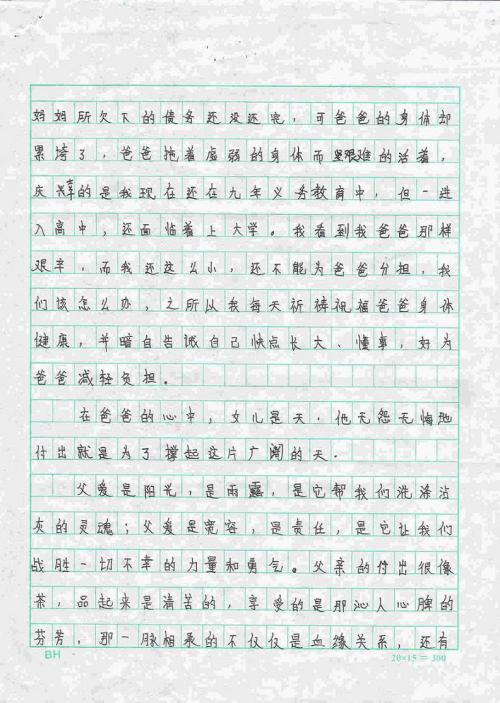 妈妈所欠下的债务还没还完，可爸爸的身体却
累垮了，爸爸拖着虚弱的身体而坚艰难的活着，
庆幸的是我现在还在九年义务教育中，但一进
入高中，还面临着上大学。我看到我爸爸那样
艰辛，而我还这么小，还不能为爸爸分担，我
们该怎么办，之所以我每天祈祷祝福爸爸身体
健康，并暗自告诫自己快点长大、懂事，好为
爸爸减轻负担。
在爸爸的心中，女儿是天，他无怨无悔地
付出就是为了撑起这片广阔的天。
父爱是阳光，是雨露，是它帮我们洗涤沾
灰的灵魂；父爱是宽容，是责任，是它让我们
战胜一切不幸的力量和勇气。父亲的付出很像
茶，品起来是清苦的，享受的是那沁人心脾的
芬芳，那一脉相承的不仅仅是血缘关系，还有
BH 20×15=300